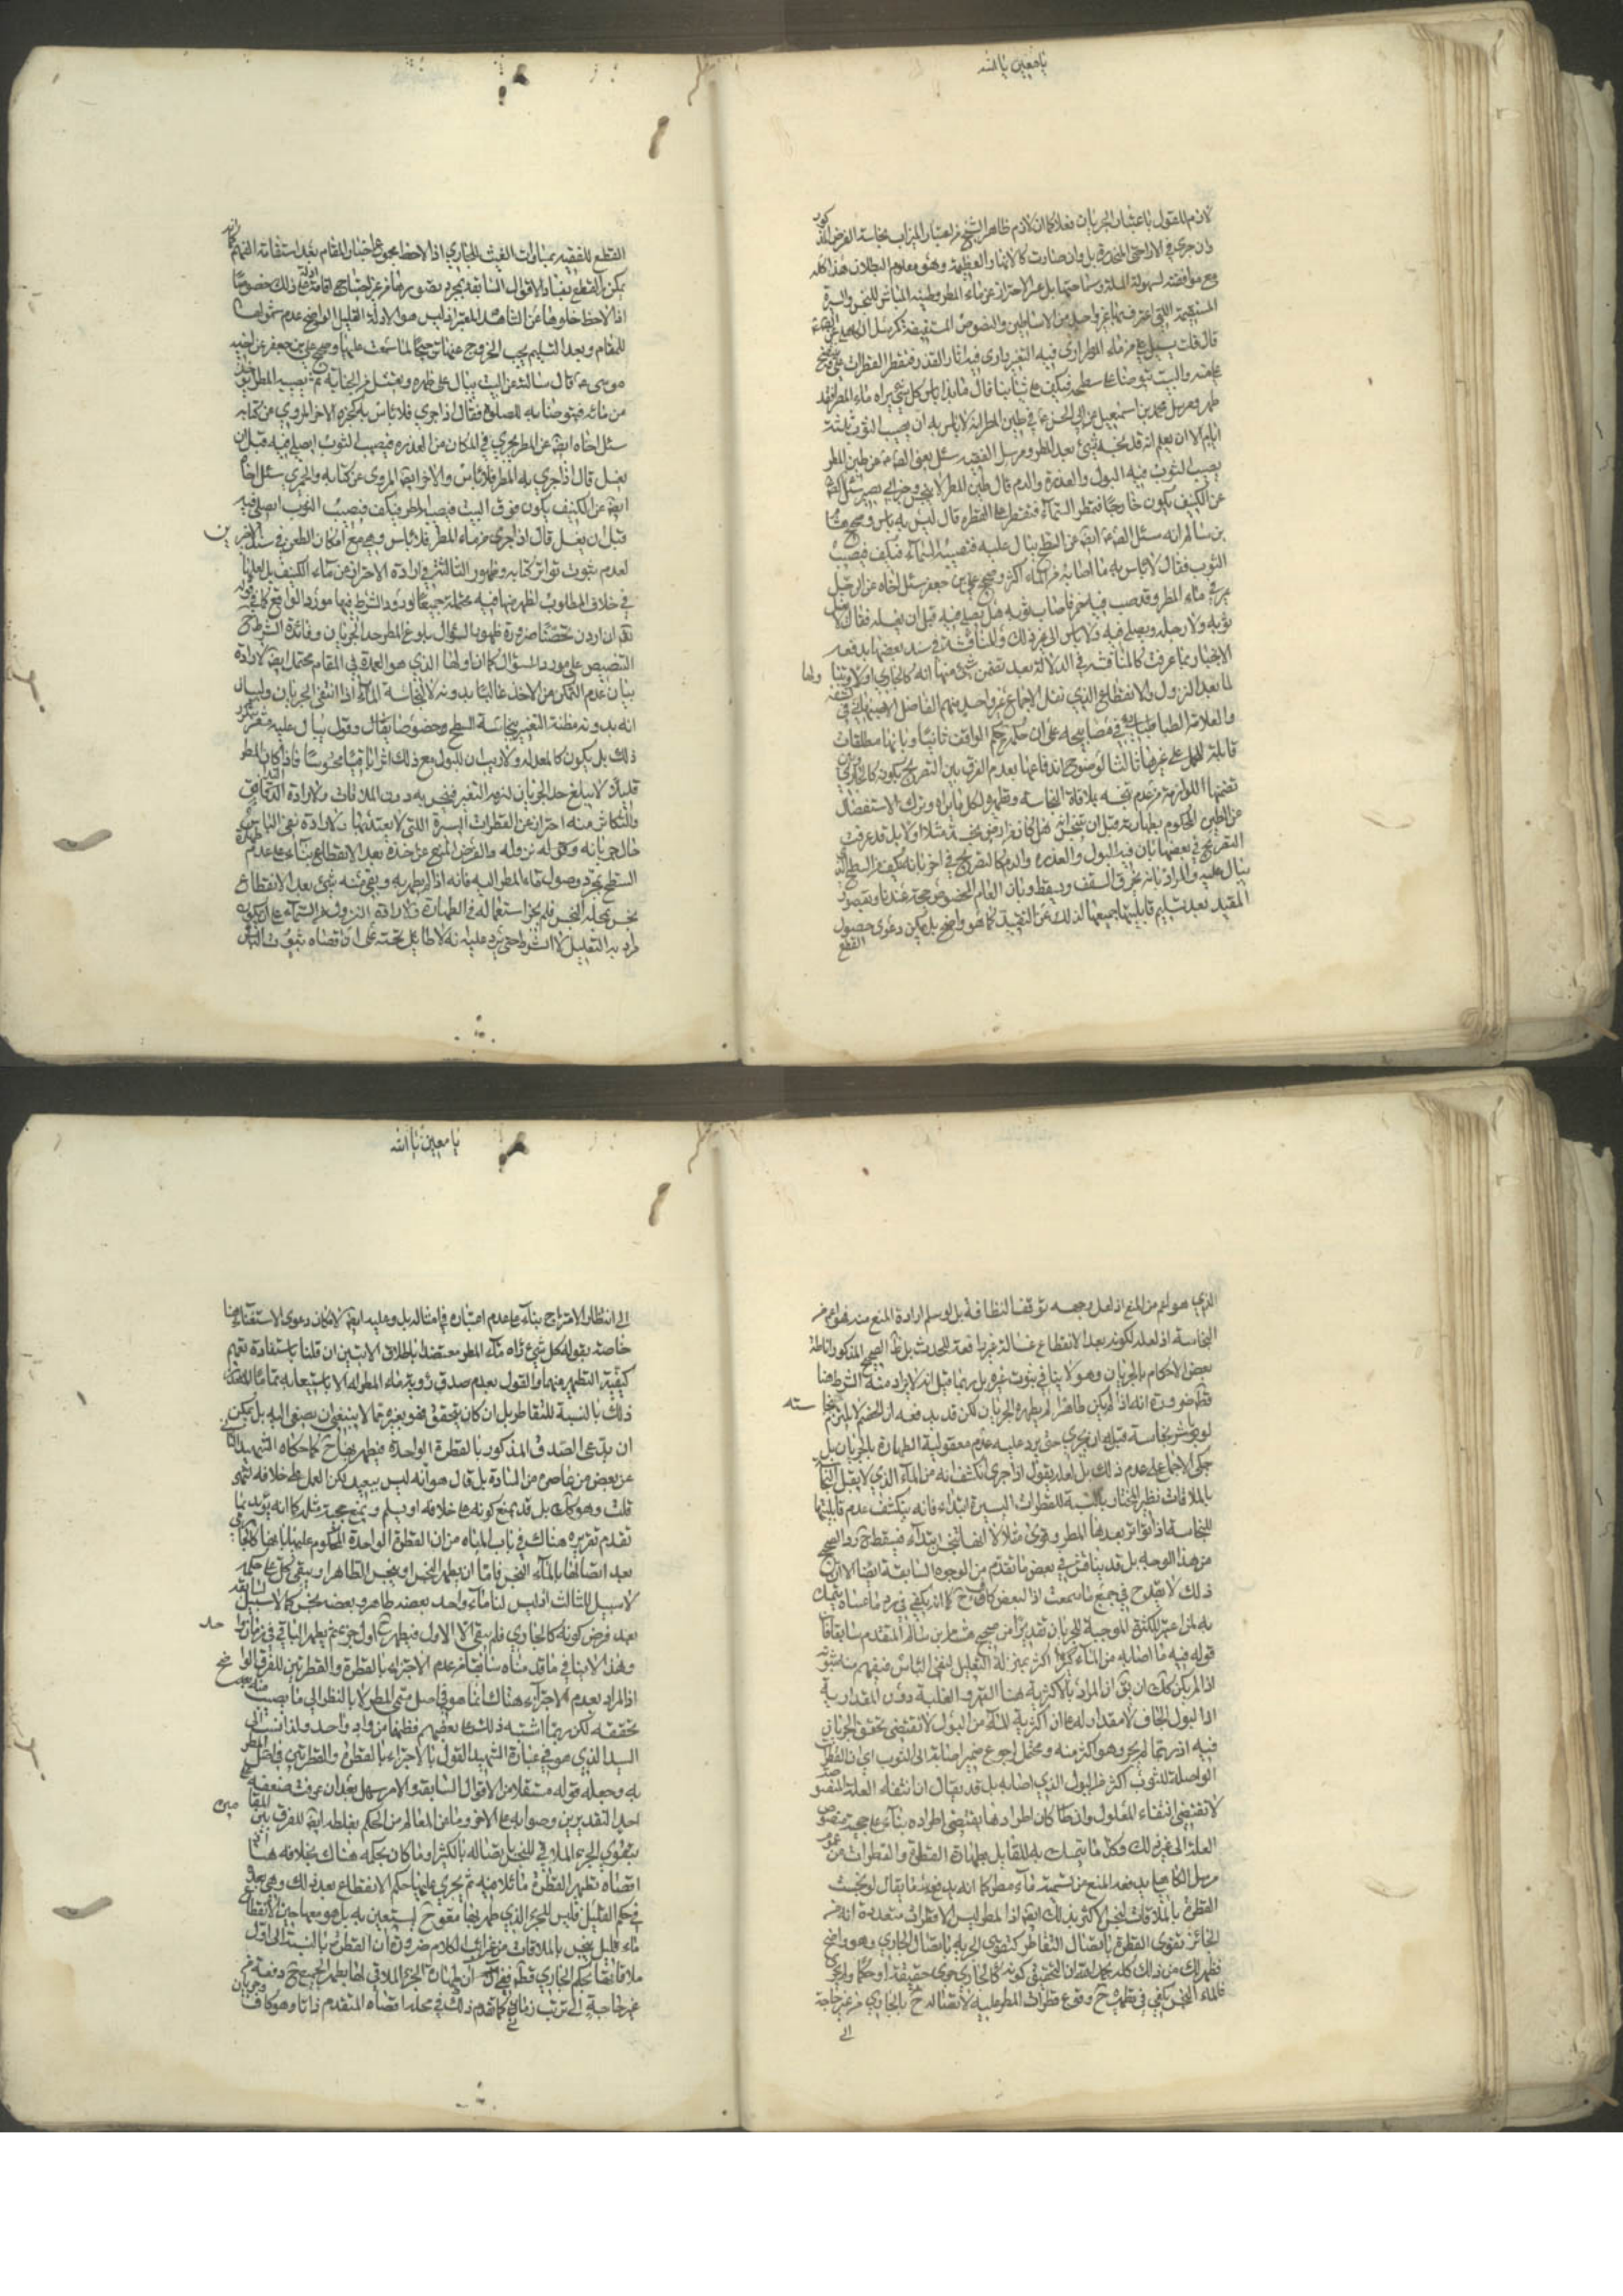 يا معين يا الله
لازم للقول باعتبار الجريان فعلا كما ان لازم ظاهر الشيخ من اعتبار الميزاب نجاسة الفرض المذكور
وان جرى في الاراضي المنحدرة بل وان صارت كالانهار العظيمة وهو معلوم البطلان هذا كله
مع موافقته لسهولة الملة وسماحتها بل عسر الاحتراز عن ماء المطر وطينه المباشر للنجس والسيرة
المستقيمة التي اعترف بها غير واحد من الاساطين والنصوص المستفيضة كمرسل الكاهلي عن
قال قلت يسيل علي من ماء المطر ارى فيه التغير وارى فيه اثار القذر فتقطر القطرات علي وينتضح
علي منه والبيت يتوضأ على سطحه فيكف على ثيابنا قال ما بذا باس كل شيء يراه ماء المطر فقد
طهر ومرسل محمد بن اسمعيل عن ابي الحسن ع في طين المطر انه لا باس به ان يصيب الثوب ثلثة
ايام الا ان يعلم انه قد نجسه شيء بعد المطر ومرسل الفقيه سئل يعني الصادق عن طين المطر
يصيب الثوب فيه البول والعذرة والدم قال طين المطر لا ينجس وخبر ابي بصير سئل الصادق
عن الكنيف يكون خارجا فتمطر السماء فتقطر علي القطرة قال ليس به باس وصحيح هشام
بن سالم انه سئل الصادق ايضا عن السطح يبال عليه فتصيبه السماء فيكف فيصيب
الثوب فقال لا باس به ما اصابه من الماء اكثر وصحيح علي بن جعفر سئل اخاه عن الرجل
يمر في ماء المطر وقد صب فيه خمر فاصاب ثوبه هل يصلي فيه قبل ان يغسله فقال لا يغسل
ثوبه ولا رجله ويصلي فيه ولا باس الى غير ذلك والمناقشة في سند بعضها يدفعه
الانجبار بما عرفت كالمناقشة في الدلالة بعد تضمن شيء منها انه كالجاري اولا
لما بعد النزول والانقطاع الذي نقل الاجماع غير واحد منهم الفاضل الاصبهاني في كشفه
والعلامة الطباطبائي في مصابيحه على ان حكمه حكم الواقف ثانيا وبانها مطلقات
قابلة للحمل على غيرها ثالثا لوضوح اندفاعها بعدم الفرق بين التصريح بكونه كالجاري وبين
تضمنها اللوازمه من عدم نجسه بملاقاة النجاسة وتطهيره لكل ما يراه وترك الاستفصال
عن الطين المحكوم بطهارته قبل ان يتنجس هل كان من ارض نجسة مثلا اولا بل قد عرفت
التصريح في بعضها بان فيه البول والعذرة والدم كالتصريح في اخر بانه يكف من السطح الذي
يبال عليه والمراد بانه يخرق السقف ويسقط وبان العام المخصوص حجة عندنا وبقصور
المقيد بعد تسليم قابليتها جميعها لذلك عن التقييد كما هو واضح بل يمكن دعوى حصول
القطع
القطع للفقيه بمساوات الغيث للجاري اذا لاحظ مجموع اخبار المقام بعد استقامة الفهم كما انه
يمكن القطع بفساد الاقوال السابقة بمجرد تصورها من غير احتياج الى اقامة ادلة على ذلك خصوصا
اذا لاحظ خلوها عن الشاهد المعتبر اذ ليس هو الا ادلة القليل الواضح عدم شمولها
للمقام وبعد التسليم يجب الخروج عنها بما سمعت عليها وصحيح علي بن جعفر عن اخيه
موسى ع قال سالته عن البيت يبال على ظهره ويغتسل من الجنابة ثم يصيبه المطر ايؤخذ
من مائه فيتوضا به للصلوة فقال اذا جرى فلا باس به كخبره الاخر المروي عن كتابه
سئل اخاه ايضا عن المطر يجري في المكان من العذرة فيصيب الثوب ايصلي فيه قبل ان
يغسل قال اذا جرى به المطر فلا باس والاخر ايضا المروي عن كتابه والحميري سئل اخاه
ايضا عن الكنيف يكون فوق البيت فيصيبه المطر فيكف فيصيب الثوب ايصلي فيه
قبل ان يغسل قال اذا جرى من ماء المطر فلا باس وهي مع امكان الطعن في سند الاخيرين
لعدم ثبوت تواتر كتابه وظهور الثالث في ارادة الاحتراز عن ماء الكنيف بل لعلها
في خلاف المطلوب اظهر منها فيه محتملة جميعا ورود الشرط فيها مورد الواقع كما في قوله
تعالى ان اردن تحصنا ضرورة ظهور السؤال ببلوغ المطر حد الجريان وفائدة الشرط ح
التنصيص على مورد السؤال كما ان اولها الذي هو العمدة في المقام محتمل ايضا لارادة
بيان عدم التمكن من الاخذ غالبا بدونه لا لنجاسة الماء اذا انتفى الجريان ولبيان
انه بدونه مظنة التغير بنجاسة السطح وخصوصا يقال وقول يبال عليه مشعر بتكرر
ذلك بل بكون كالمعد له ولا ريب ان للبول مع ذلك اثرا باقيا محسوسا فاذا كان المطر
قليلا لا يبلغ حد الجريان لزمه التغير فنجس به دون الملاقات ولارادة التدافق
والتكاثر منه احتراز عن القطرات اليسيرة التي لا يعتد بها ولارادة نفي الباس
حال جريانه وكونه له نزوله والفرض المنع عن اخذه بعد الانقطاع بناء على عدم طهارة
السطح بمجرد وصول ماء المطر اليه فانه اذا لم يطهر به وبقي منه شيء بعد الانقطاع
نجس بمحله النجس فلم يجز استعماله في الطهارة ولارادة النزول من السماء على ان يكون
مراد به التعليل لا الشرط حتى يرد عليه انه لا طائل تحته على ان اقصاه ثبوت الباس
يا معين يا الله
الذي هو اعم من المنع اذ لعل وجهه توقف النظافة بل لو سلم ارادة المنع منه فهو اعم من
النجاسة اذ لعله لكونه بعد الانقطاع غسالة غير رافعة للحدث بل ظ الصحيح المذكور اناطة
بعض الاحكام بالجريان وهو لا ينافي ثبوت غيره بل ربما قيل انه لا يراد منه الشرط هنا
قطعا ضرورة انه اذا لم يكن طاهرا لم يطهره الجريان لكن قد يدفعه ان الخصم لا يلتزم بنجاسته
لو باشر نجاسة قبل ان يجري حتى يرد عليه عدم معقولية الطهارة بالجريان بل
حكي الاجماع على عدم ذلك بل لعله يقول اذا جرى انكشف انه من الماء الذي لا يقبل النجاسة
بالملاقات نظير المختار بالنسبة للقطرات اليسيرة ابتداء فانه ينكشف عدم قابليتها
للنجاسة اذا تواتر بعدها المطر وقوى مثلا لا انها تنجس ابتداء فيسقط ح رد الصحيح
من هذا الوجه بل قد يناقش في بعض ما تقدم من الوجوه السابقة ايضا الا ان
ذلك لا يقدح في جميع ما سمعت اذ البعض كاف ح كما انه يكفي في رد ما عساه يتمسك
به لمن اعتبر الكثرة الموجبة للجريان تقديرا من صحيح هشام بن سالم المتقدم سابقا فان
قوله فيه ما اصابه من الماء اكثر بمنزلة التعليل لنفي الباس فيفهم منه ثبوته
اذا لم يكن كذلك ان يق ان المراد بالاكثرية هنا القهر والغلبة دون المقدارية
اذ البول الجاف لا مقدار له على ان اكثرية الماء من البول لا تقتضي تحقق الجريان
فيه اذ ربما لم يجر وهو اكثر منه ومحتمل رجوع ضمير اصابه الى الثوب اي ان القطرة
الواصلة للثوب اكثر من البول الذي اصابه بل قد يقال ان انتفاء العلة المنصوصة
لا تقتضي انتفاء المعلول وان كان اطرادها يقتضي اطراده بناء على حجية منصوص
العلة الى غير ذلك وكل ما يتمسك به للقائل بطهارة القطرة والقطرات من عموم
مرسل الكاهلي يدفعه المنع من تسميته ماء مطر كما انه يدفع ما يقال لو نجست
القطرة بالملاقات لنجس الاكثر بذلك ايضا اذ المطر ليس الا قطرات متعددة انه من
الجائز تقوى القطرة باتصال التقاطر كتقوي الجرية باتصال الجاري وهو واضح
فظهر لك من ذلك كله بحمد الله ان التحقيق كونه كالجاري جرى حقيقة او حكما ولا يجري
فالماء النجس يكفي في تطهيره ح وقوع قطرات المطر عليه لاتصاله ح بالجاري من غير حاجة
الى
الى انتظار الامتزاج بناء على عدم اعتباره في امثاله بل وعليه ايضا لامكان دعوى الاستغناء هنا
خاصة بقوله كل شيء يراه ماء المطر معتضدا باطلاق الايتين ان قلنا باستفادة تعميم
كيفية التطهير منهما والقول بعدم صدق رؤية ماء المطر له الا باستيعابه تماما لا يتحقق
ذلك بالنسبة للتقاطر بل ان كان يتحقق فهو بغيره مما لا ينبغي ان يصغى اليه بل يمكن
ان يدعى الصدق المذكور بالقطرة الواحدة فيطهر بها ح كما حكاه الشهيد الثاني
عن بعض من عاصره من السادة بل قال هو انه ليس ببعيد لكن العمل على خلافه انتهى
قلت وهو كذلك بل قد يمنع كونه على خلافه او يسلم ويمنع حجية مثله كما انه يؤيد بما
تقدم تقريره هناك في باب المياه من ان القطرة الواحدة المحكوم عليها بانها كالجاري
بعد اتصالها بالماء النجس فاما ان يطهر النجس او ينجس الطاهر او يبقى كل على حكمه
لا سبيل للثالث اذ ليس لنا ماء واحد بعضه طاهر وبعضه نجس كما لا سبيل للثاني
بعد فرض كونه كالجاري فلم يبقى الا الاول فيطهر ح اول جزء ثم يطهر الباقي في زمان واحد
وهذا لا ينافي ما قدمناه سابقا من عدم الاجتزاء بالقطرة والقطرتين للفرق الواضح
اذ المراد بعدم الاجتزاء هناك انما هو في اصل مسمى المطر لا بالنظر الى ما يصيب منه بعد
تحققه لكن ربما اشتبه ذلك على بعضهم فظنهما من واد واحد ولذا نسب الى
السيد الذي هو في عبارة الشهيد القول بالاجتزاء بالقطرة والقطرتين في اصل المطر
به وجعله قولا مستقلا من الاقوال السابقة والامر سهل بعد ان عرفت ضعفه على
احد التقديرين وصوابه على الاخر وما في المعالم من الحكم بغلطه ايضا للفرق بين المقامين
بتقوي الجزء الملاقي للنجس باتصاله بالكثير او ما كان بحكمه هناك بخلافه هنا اذ
اقصاه تطهير القطرة ما تلاقيه ثم يجري عليها حكم الانقطاع بعد ذلك وهي بعده
في حكم القليل فليس للجزء الذي طهر بها مقو ح ليستعين به بل هو معها حين الانقطاع
ماء قليل ينجس بالملاقات من غرائب الكلام ضرورة ان القطرة بالنسبة الى اول
ملاقاتها بحكم الجاري قطعا ففي ان طهارة الجزء الملاقي لها يطهر الجميع ح دفعة من
غير حاجة الى ترتب زماني كما تقدم ذلك في محله اقصاه المتقدم ذاتا وهو كاف